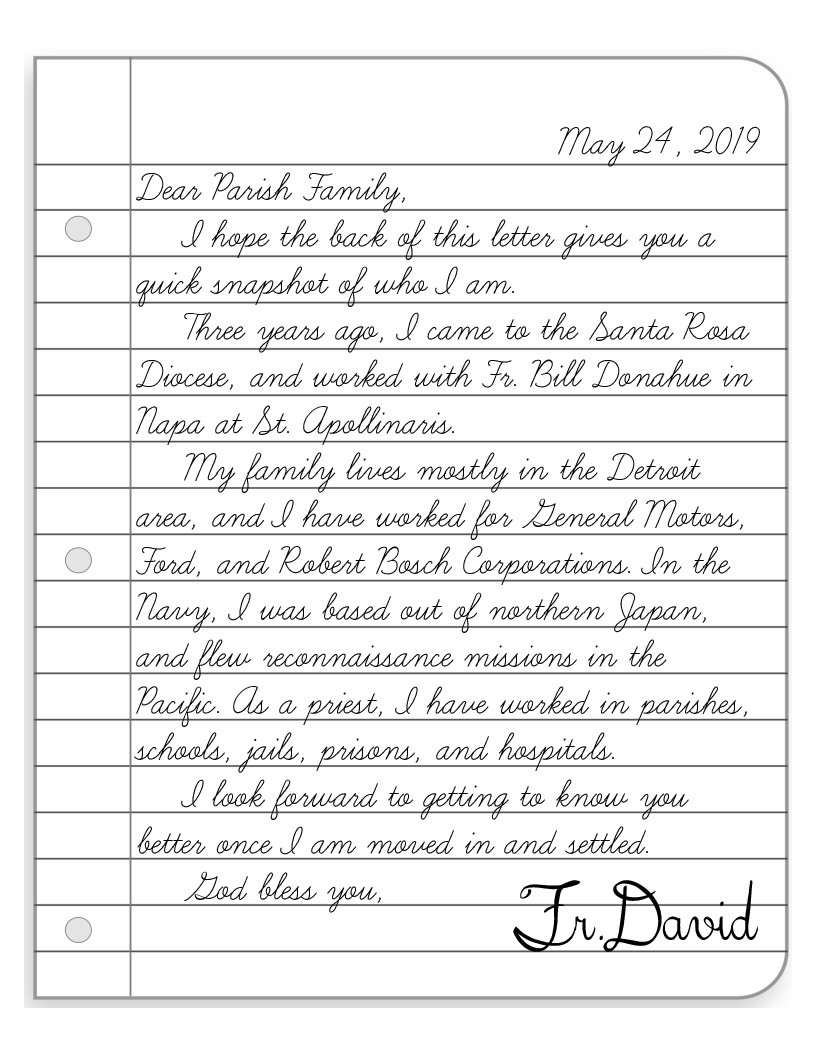 May 24, 2019
Dear Parish Family,
I hope the back of this letter gives you a
quick snapshot of who I am.
Three years ago, I came to the Santa Rosa
Diocese, and worked with Fr. Bill Donahue in
Napa at St. Apollinaris.
My family lives mostly in the Detroit
area, and I have worked for General Motors,
Ford, and Robert Bosch Corporations. In the
Navy, I was based out of northern Japan,
and flew reconnaissance missions in the
Pacific. As a priest, I have worked in parishes,
schools, jails, prisons, and hospitals.
I look forward to getting to know you
better once I am moved in and settled.
God bless you,
Fr. David